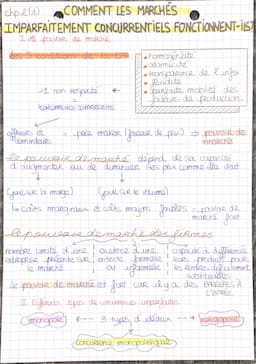 chp 2 (a) COMMENT LES MARCHÉS
IMPARFAITEMENT CONCURRENTIELS FONCTIONNENT-ILS?
I. Le pouvoir de marché
Les 5 conditions de la CPP
• homogénéité
• atomicité
• transparence de l'info
• fluidité
• parfaite mobilité des
facteurs de productions
1 non respecté =
concurrence imparfaite
offreurs et demandeurs = price maker (faiseur de prix) ⇒ pouvoir de marché
Le pouvoir de marché dépend de sa capacité
à augmenter ou de diminuer ses prix comme elle veut
(joue sur la marge) (joue sur le volume)
↳ coûts marginaux et coûts moyen faibles = pouvoir de
marché fort
Le pouvoir de marché des firmes
nombre limité d'une
entreprise présente sur
le marché
existence d'une
entente formelle
ou informelle
capacité à différencier
leurs produits pour
les rendre difficilement
substituables
Le pouvoir de marché est fort car il y a des BARRIÈRES À
L'ENTRÉE
II. Différents types de concurrences imparfaites
monopole ← 3 types d'idéaux → oligopole
concurrence monopolistique